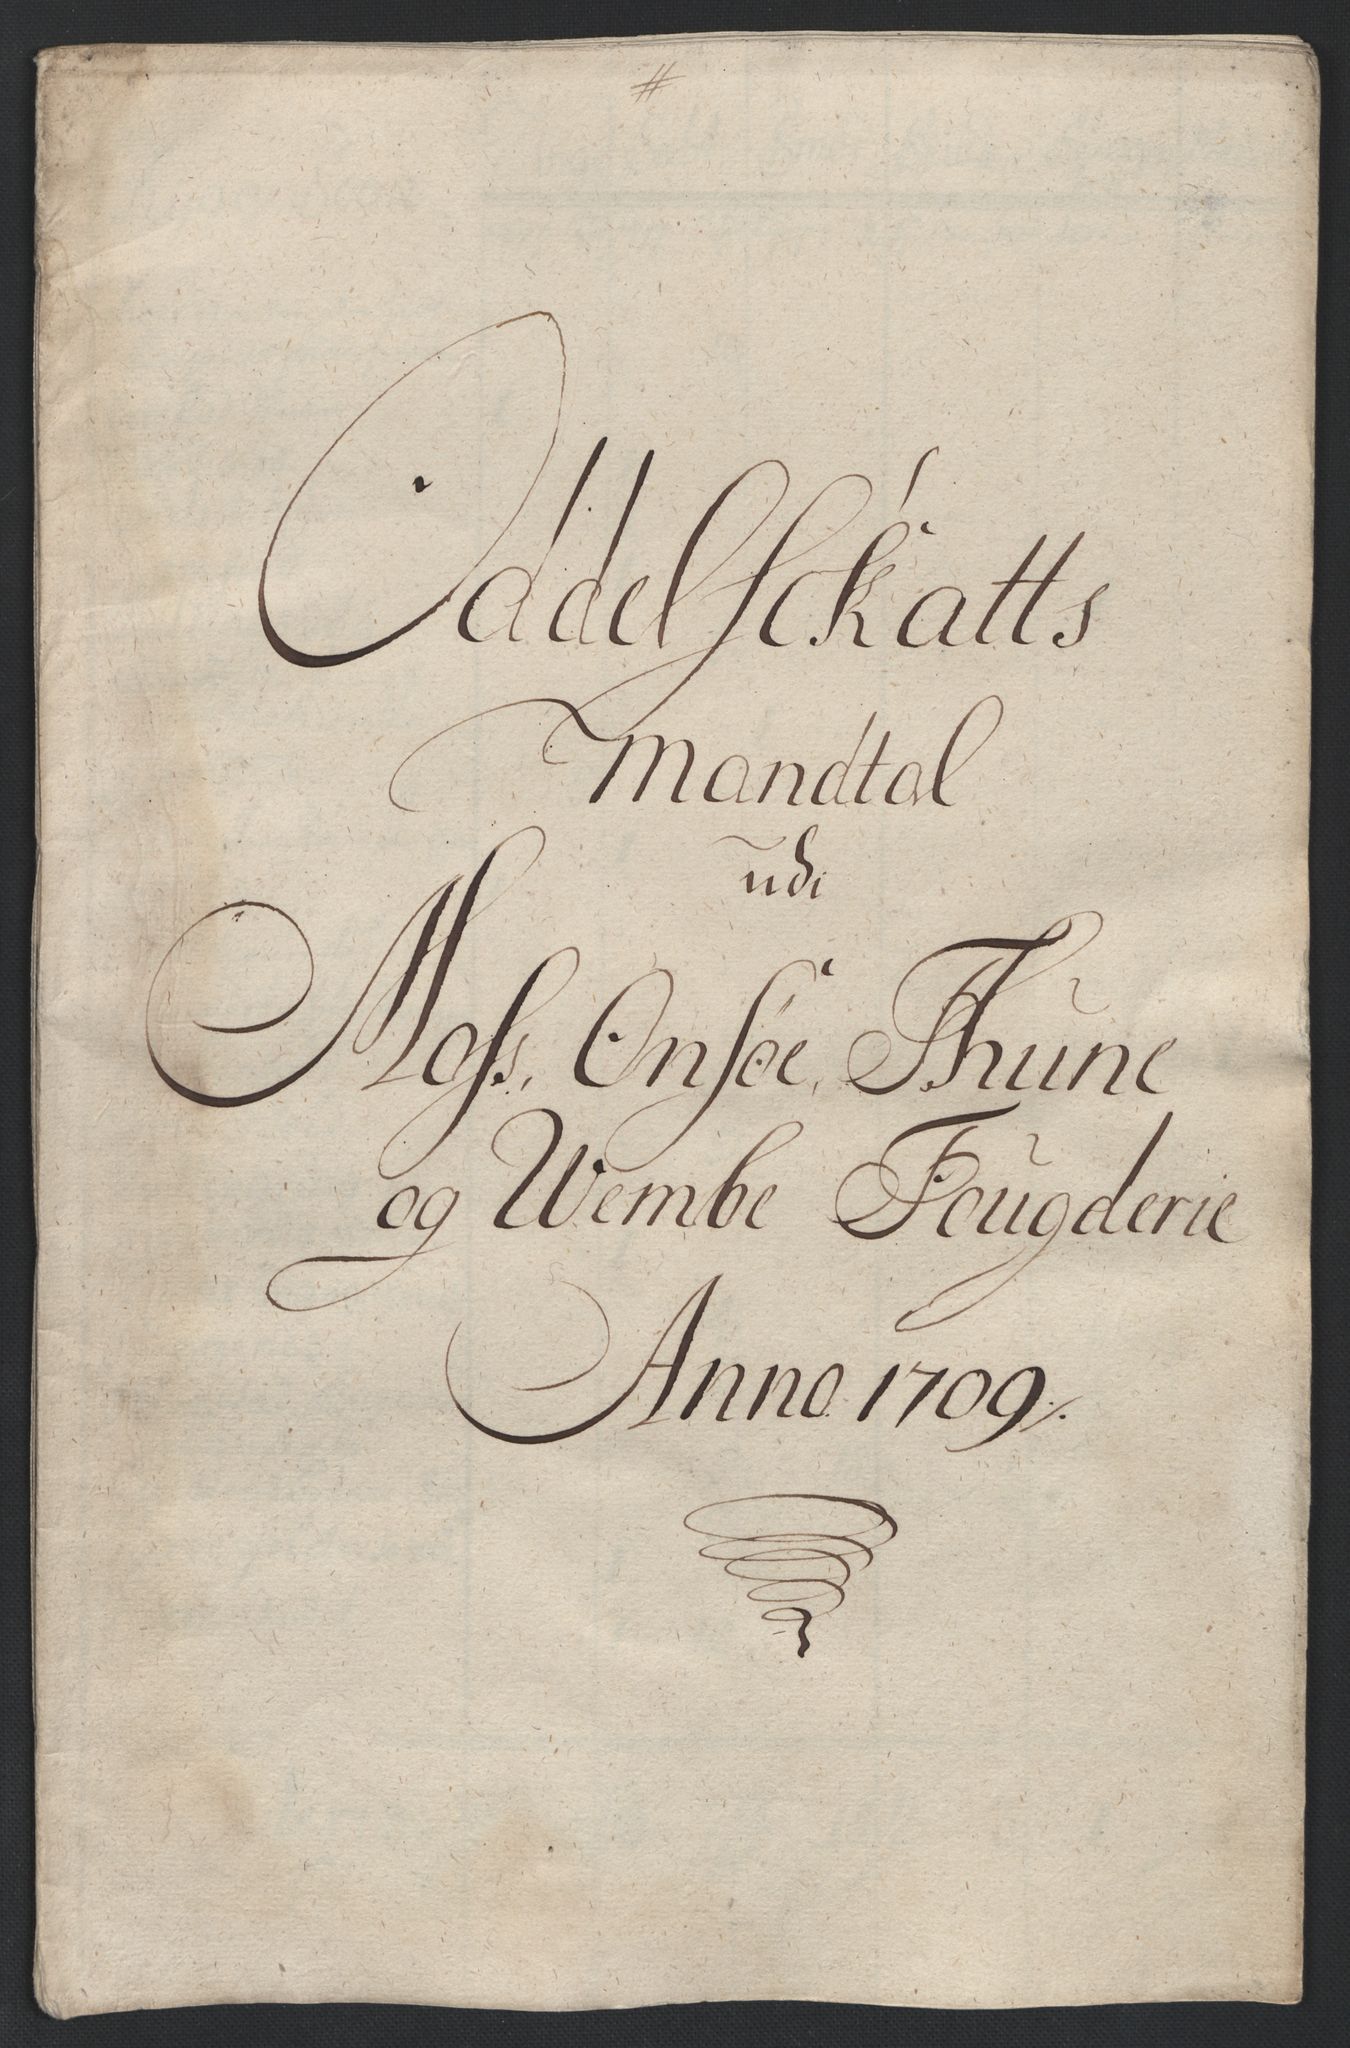 #
Oddelschatts
Mandtal
udi
Moss, Onsöe, Thune
og Wembe Fougderie
Anno 1709/.